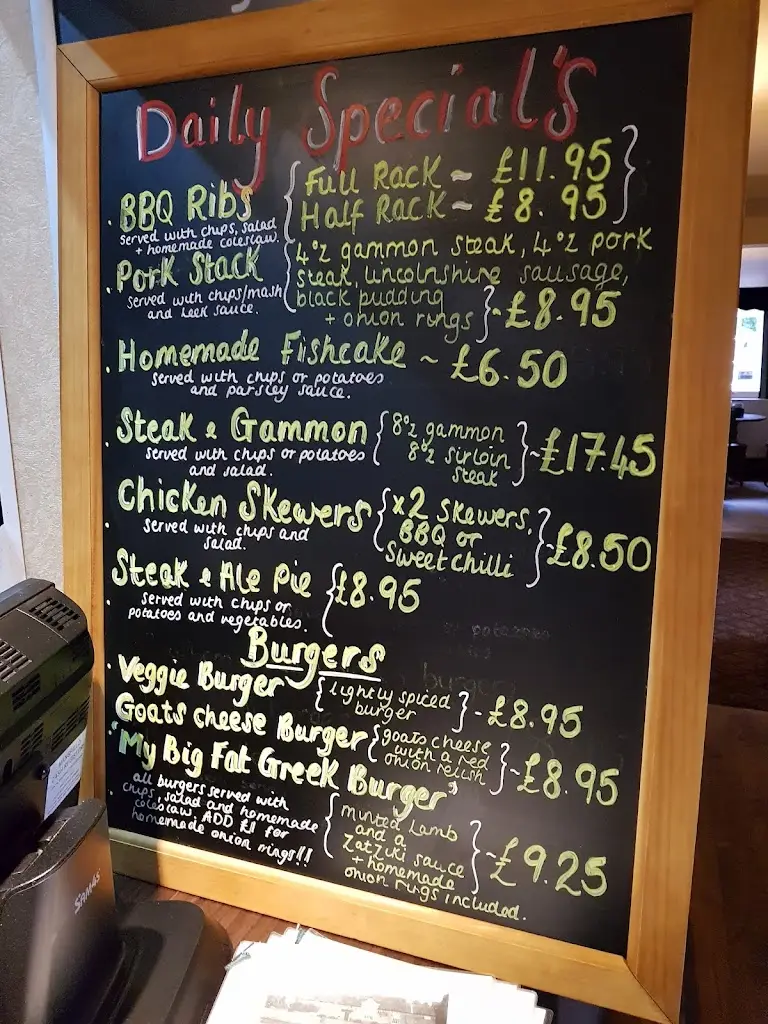 Daily Special's
BBQ Ribs { Full Rack ~ £11.95
Half Rack ~ £8.95 }
served with chips, salad
+ homemade coleslaw.
Pork Stack { 4oz gammon steak, 4oz pork
steak, lincolnshire sausage,
black pudding
+ onion rings } ~ £8.95
served with chips/mash
and leek sauce.
Homemade Fishcake ~ £6.50
served with chips or potatoes
and parsley sauce.
Steak & Gammon { 8oz gammon
8oz sirloin
steak } ~ £17.45
served with chips or potatoes
and salad.
Chicken Skewers { x2 skewers,
BBQ or
sweet chilli } ~ £8.50
served with chips and
salad.
Steak & Ale Pie { £8.95
served with chips or
potatoes and vegetables.
Burgers
Veggie Burger { lightly spiced
burger } - £8.95
Goats cheese Burger { goats cheese
with a red
onion relish } ~ £8.95
'My Big Fat Greek Burger'
{ minted lamb
and a
Zatziki sauce
+ homemade
onion rings included. } ~ £9.25
all burgers served with
chips, salad and homemade
coleslaw, ADD £1 for
homemade onion rings!!
SAM4S